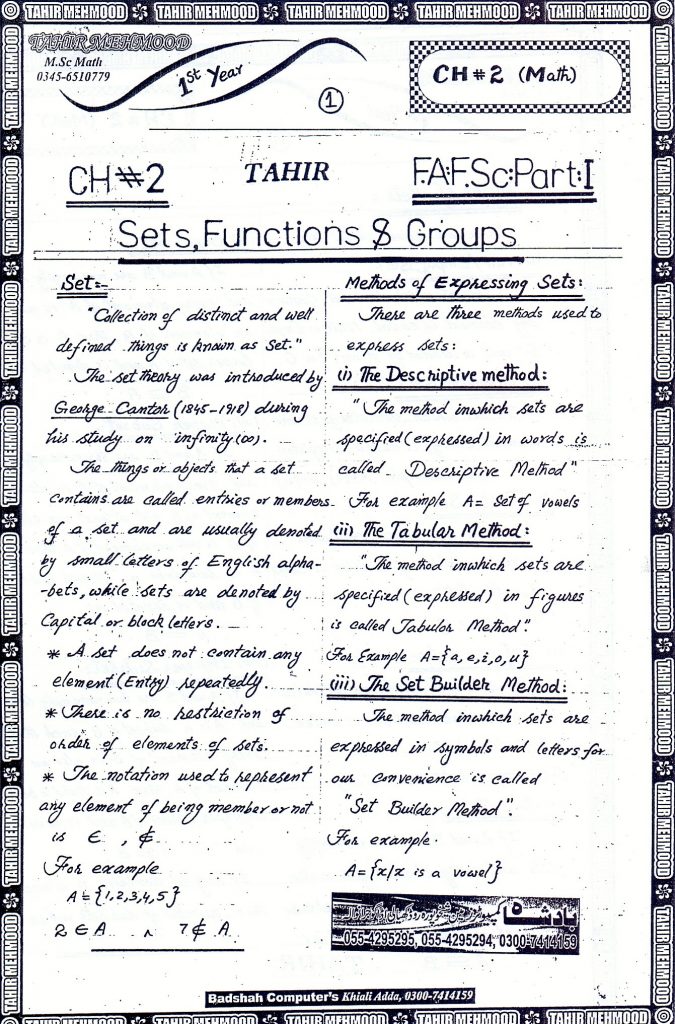 TAHIR MEHMOOD TAHIR MEHMOOD TAHIR MEHMOOD TAHIR MEHMOOD TAHIR MEHMOOD
TAHIR MEHMOOD
M.Sc Math
0345-6510779
1st Year
1
CH # 2 (Math)
CH # 2
TAHIR
F.A:F.Sc:Part:I
Sets, Functions & Groups
Set:-
"Collection of distinct and well
defined things is known as Set."
The set theory was introduced by
George Cantor (1845-1918) during
his study on infinity (∞).
The things or objects that a set
contains are called entries or members
of a set and are usually denoted
by small letters of English alpha-
-bets, while sets are denoted by
Capital or block letters.
* A set does not contain any
element (Entry) repeatedly.
* There is no restriction of
order of elements of sets.
* The notation used to represent
any element of being member or not
is ∈ , ∉
For example
A = {1,2,3,4,5}
2 ∈ A ∧ 7 ∉ A
Methods of Expressing Sets:
There are three methods used to
express sets:
(i) The Descriptive method:
"The method inwhich sets are
specified (expressed) in words is
called Descriptive Method"
For example A = Set of vowels
(ii) The Tabular Method:
"The method inwhich sets are
specified (expressed) in figures
is called Tabular Method".
For Example A={a, e, i, o, u}
(iii) The Set Builder Method:
The method inwhich sets are
expressed in symbols and letters for
our convenience is called
"Set Builder Method".
For example.
A = {x/x is a vowel}
055-4295295, 055-4295294, 0300-7414159
Badshah Computer's Khiali Adda, 0300-7414159